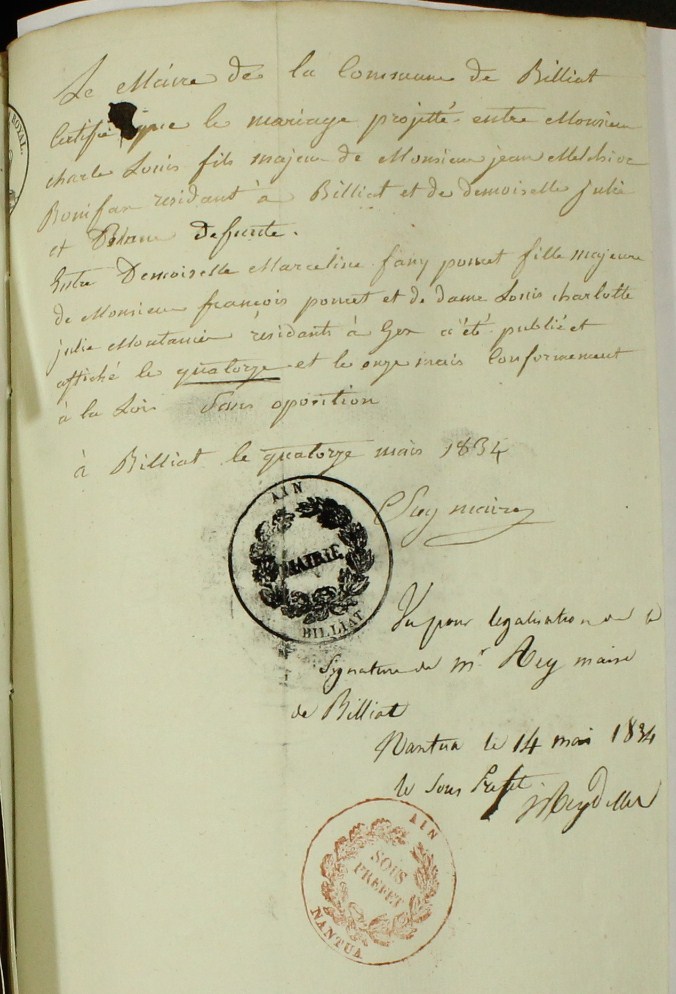 Le Maire de la Commune de Billiat
Certifie que le mariage projetté entre Monsieur
charle Louis fils majeur de Monsieur jean Melchior
Bonifax residant à Billiat et de demoiselle Julie
et Blanc Defunte.
Entre Demoiselle Marceline fany poncet fille majeure
de Monsieur françois poncet et de dame Louis charlotte
julie Montanier résidants à Gex a été publié et
affiché le quatorze et le onze mais Conformement
à la Lois Sans oposition
à Billiat le quatorze mais 1834
Rey maire
AIN
MAIRIE
BILLIAT
Vu pour legalisation de la
signature de mr Rey maire
de Billiat
Nantua le 14 mai 1834
le Sous Prefet
AIN
SOUS
PREFET
NANTUA
ROYAL.